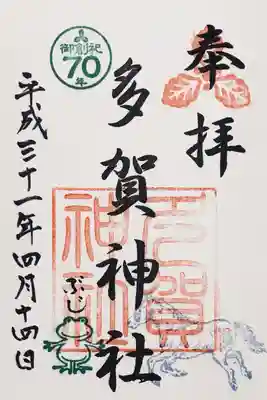 奉拝
御創祀
70
年
多賀神社
多賀
神社
ぶじ
平成三十一年四月十四日